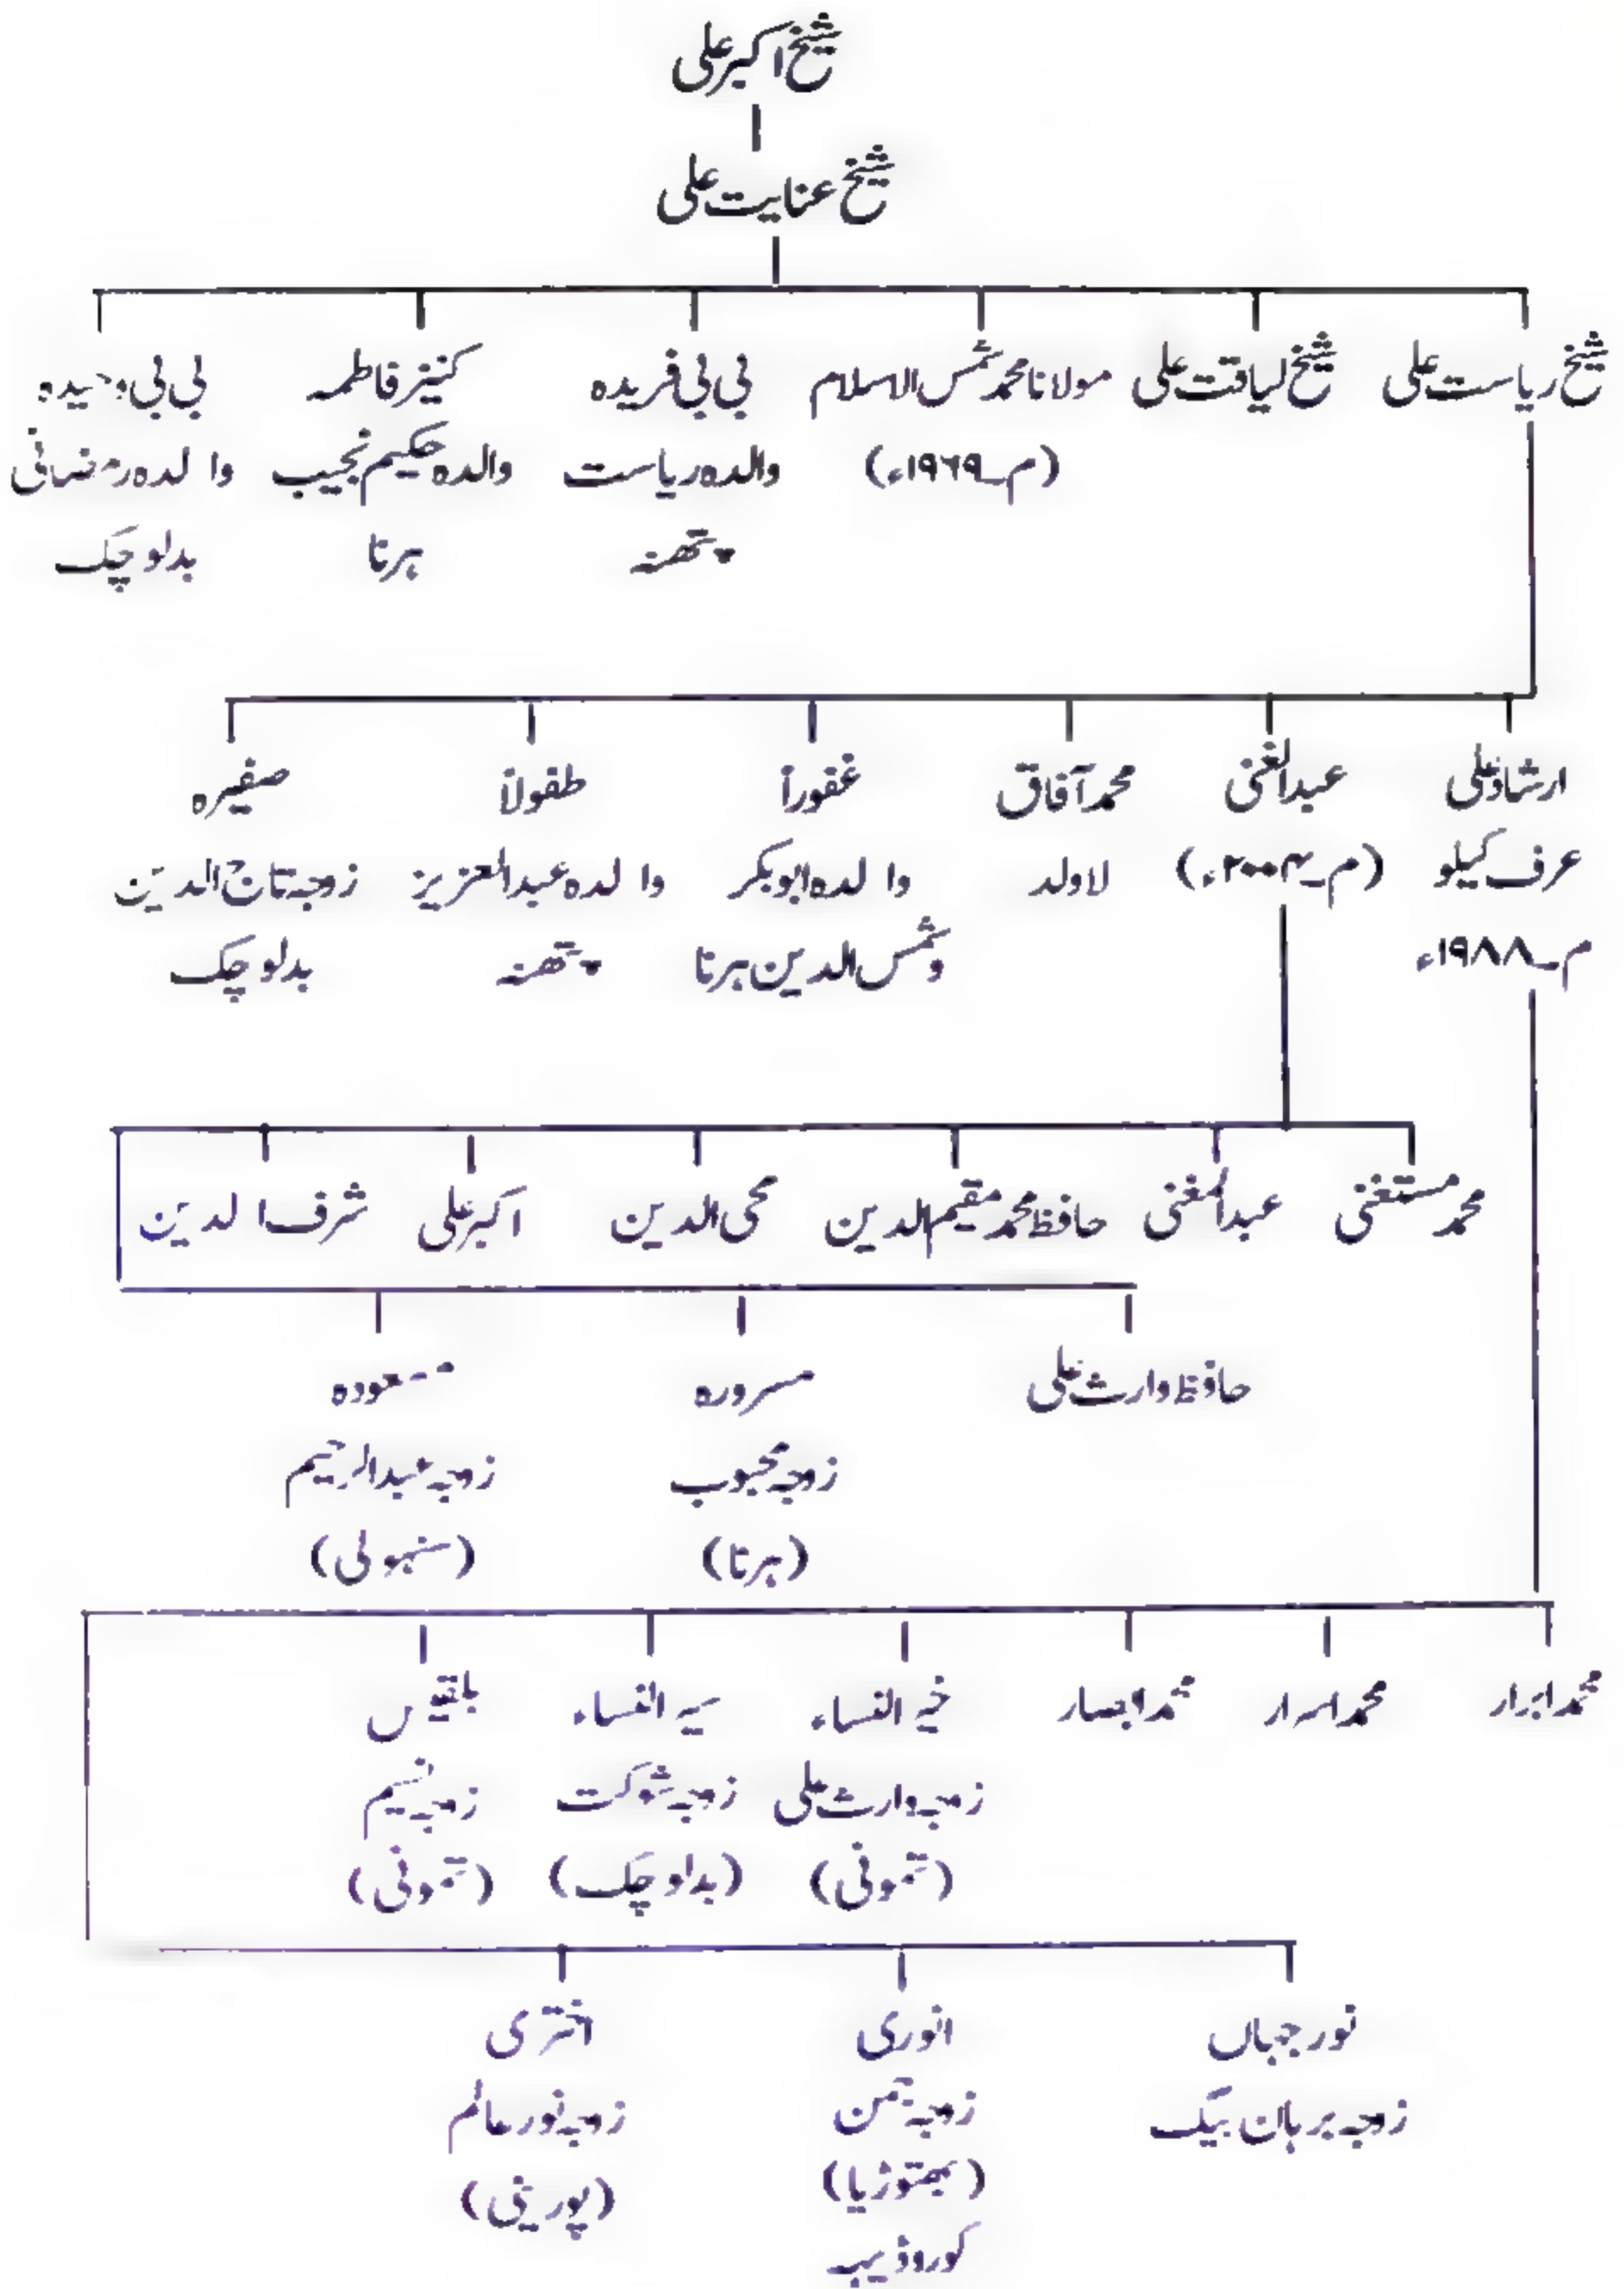 شیخ اکبر علی
شیخ عنایت علی
شیخ ریاست علی
شیخ لیاقت علی
مولانا محمد شمس الاسلام
(م۔۱۹۶۹ء)
بی بی فریدہ
والدہ ریاست
پتھنہ
کنیز فاطمہ
والدہ حکیم نجیب
ہرنا
بی بی وحیدہ
والدہ رمضانی
بدلو چک
ارشاد علی
عرف کیلو
م۔۱۹۸۸ء
عبدالغنی
(م۔۲۰۰۴ء)
محمد آفاق
لاولد
غفوراً
والدہ ابوبکر
وشمس الدین ہرنا
طفولاً
والدہ عبدالعزیز
پتھنہ
صفیرہ
زوجہ تاج الدین
بدلو چک
محمد مستغنی
عبدالمغنی
حافظ محمد مقیم الدین
محی الدین
اکبر علی
شرف الدین
حافظ وارث علی
مسرورہ
زوجہ محبوب
(ہرنا)
مسعودہ
زوجہ عبدالرحیم
(سنہولی)
محمد ابرار
محمد اسرار
محمد ابصار
خیر النساء
زوجہ وارث علی
(تمونی)
سیر النساء
زوجہ شوکت
(بدلو چک)
بلقیس
زوجہ نسیم
(تمونی)
نور جہاں
زوجہ برہان بیگ
انوری
زوجہ تمن
(بھتوڑیا)
کوروڈیہہ
اختری
زوجہ نور عالم
(پورینی)